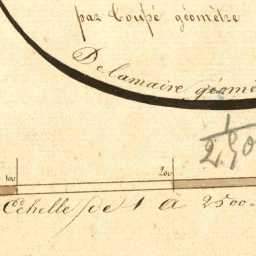 par Coupé géomètre
Delamaire géomè
1
100 200
Echelle de 1 à 2500.